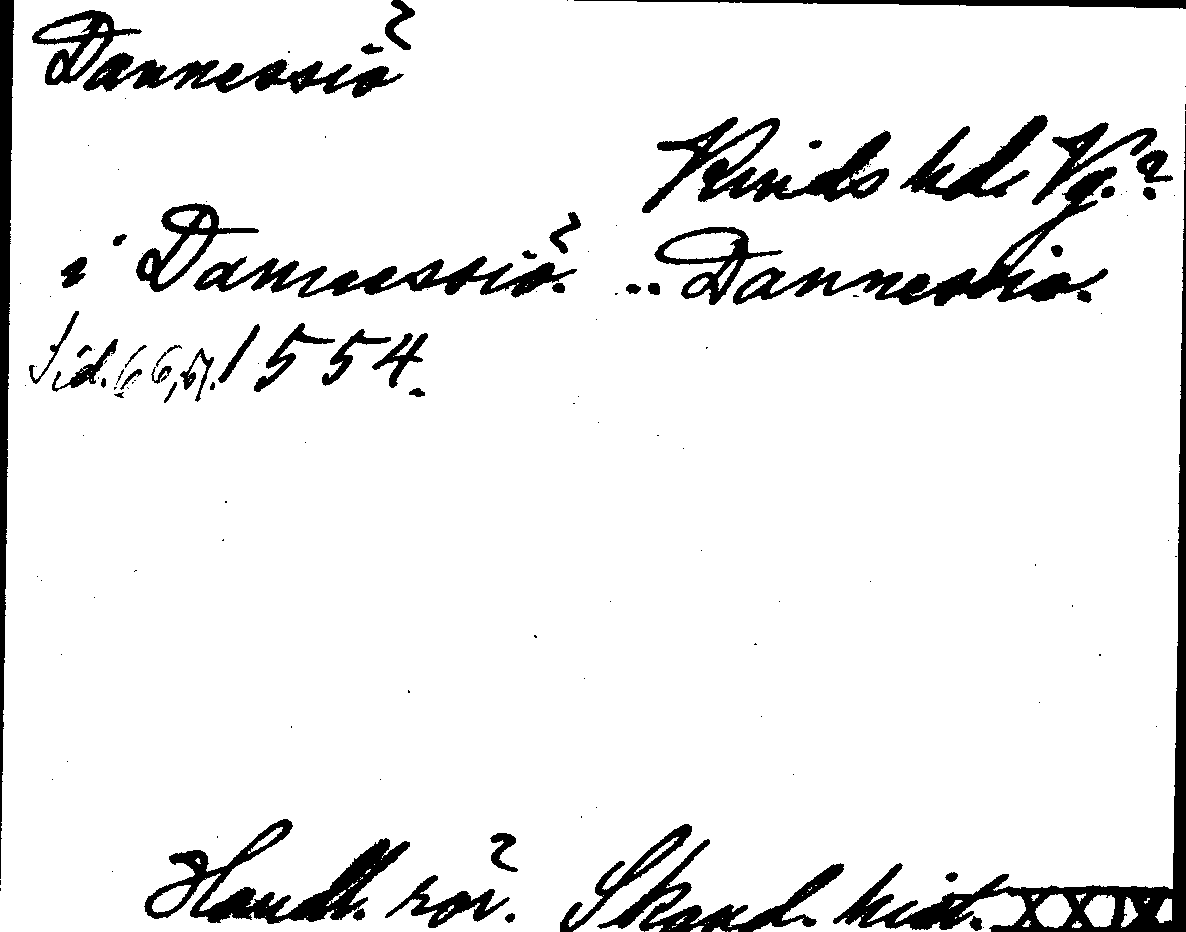 Dannessiö
Kinds hd. Vg.?
i Dannessiö. .. Dannessiö.
Sid. 66,67. 1554.
Handl. rör. Skand. hist. XXIX